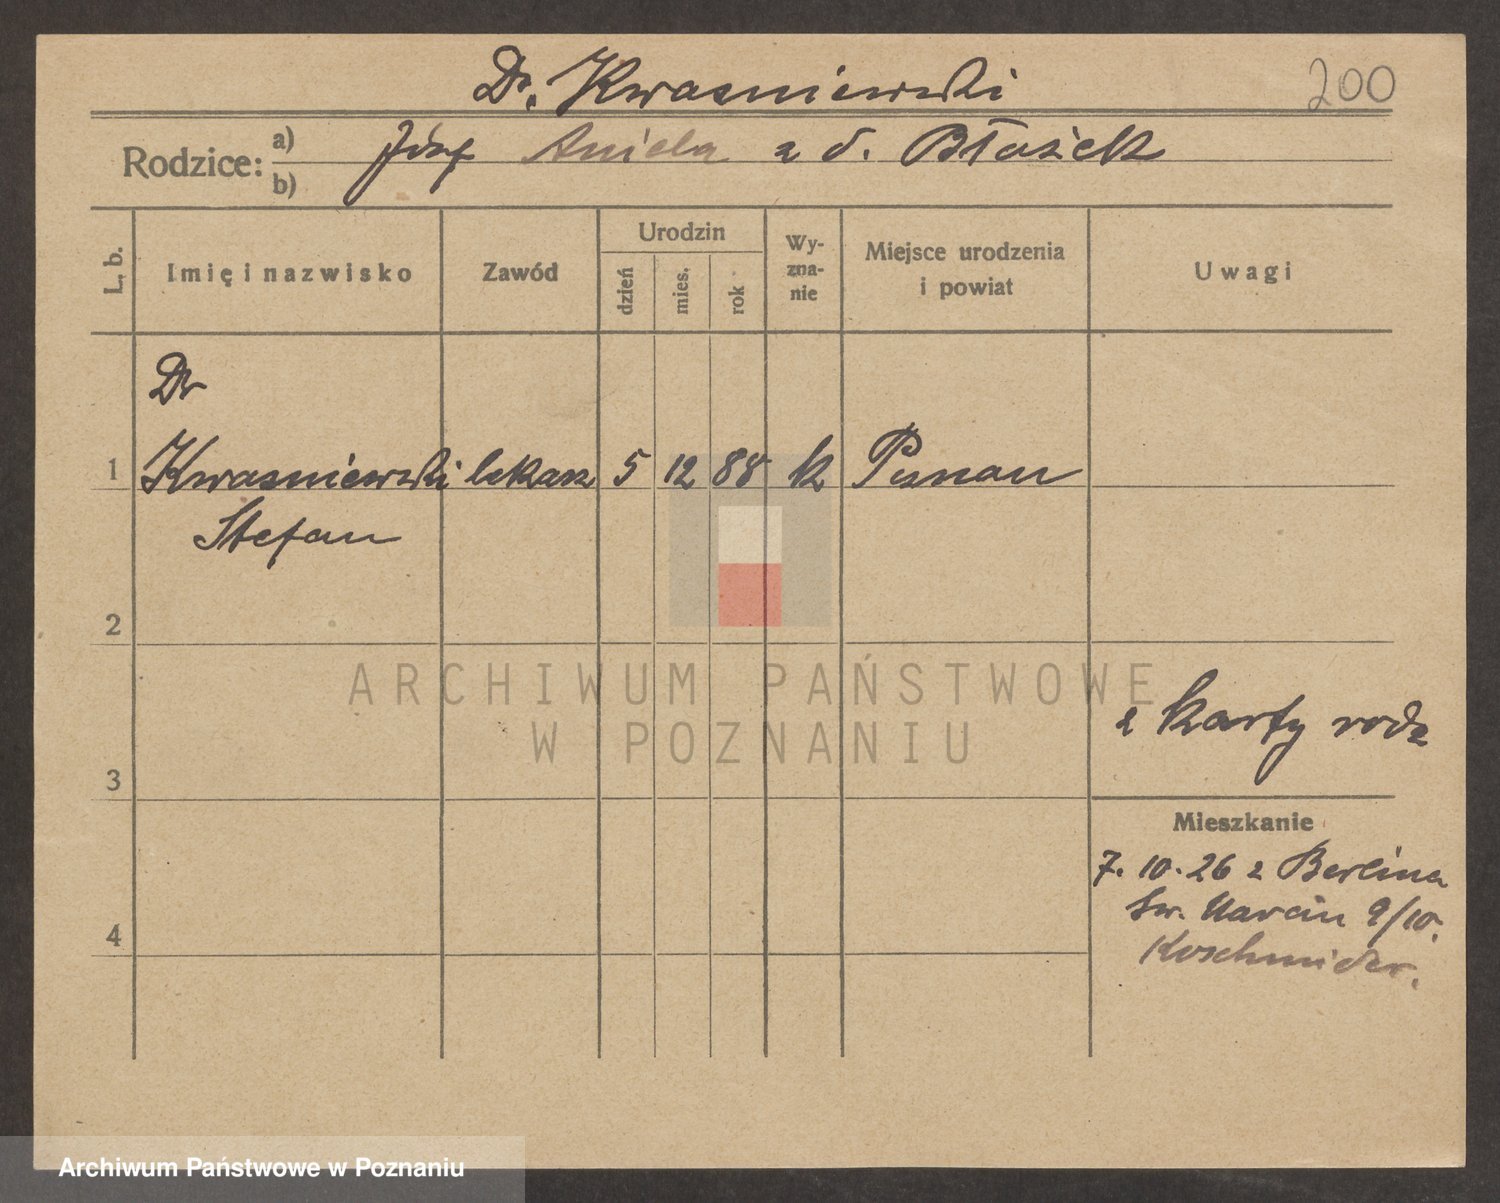 Dr. Kwasniewski 200
Rodzice: a) Józef Aniela z d. Błażek
b)
L. b. Imię i nazwisko Zawód Urodzin dzień mies. rok Wy-zna-nie Miejsce urodzenia i powiat Uwagi
Dr
1 Kwasniewski lekarz 5 12 88 k Poznan
Stefan
2
ARCHIWUM PAŃSTWOWE
W POZNANIU
z karty rodz
3
Mieszkanie
7. 10. 26 z Berlina
Św. Marcin 9/10.
4
Koschmider.
Archiwum Państwowe w Poznaniu